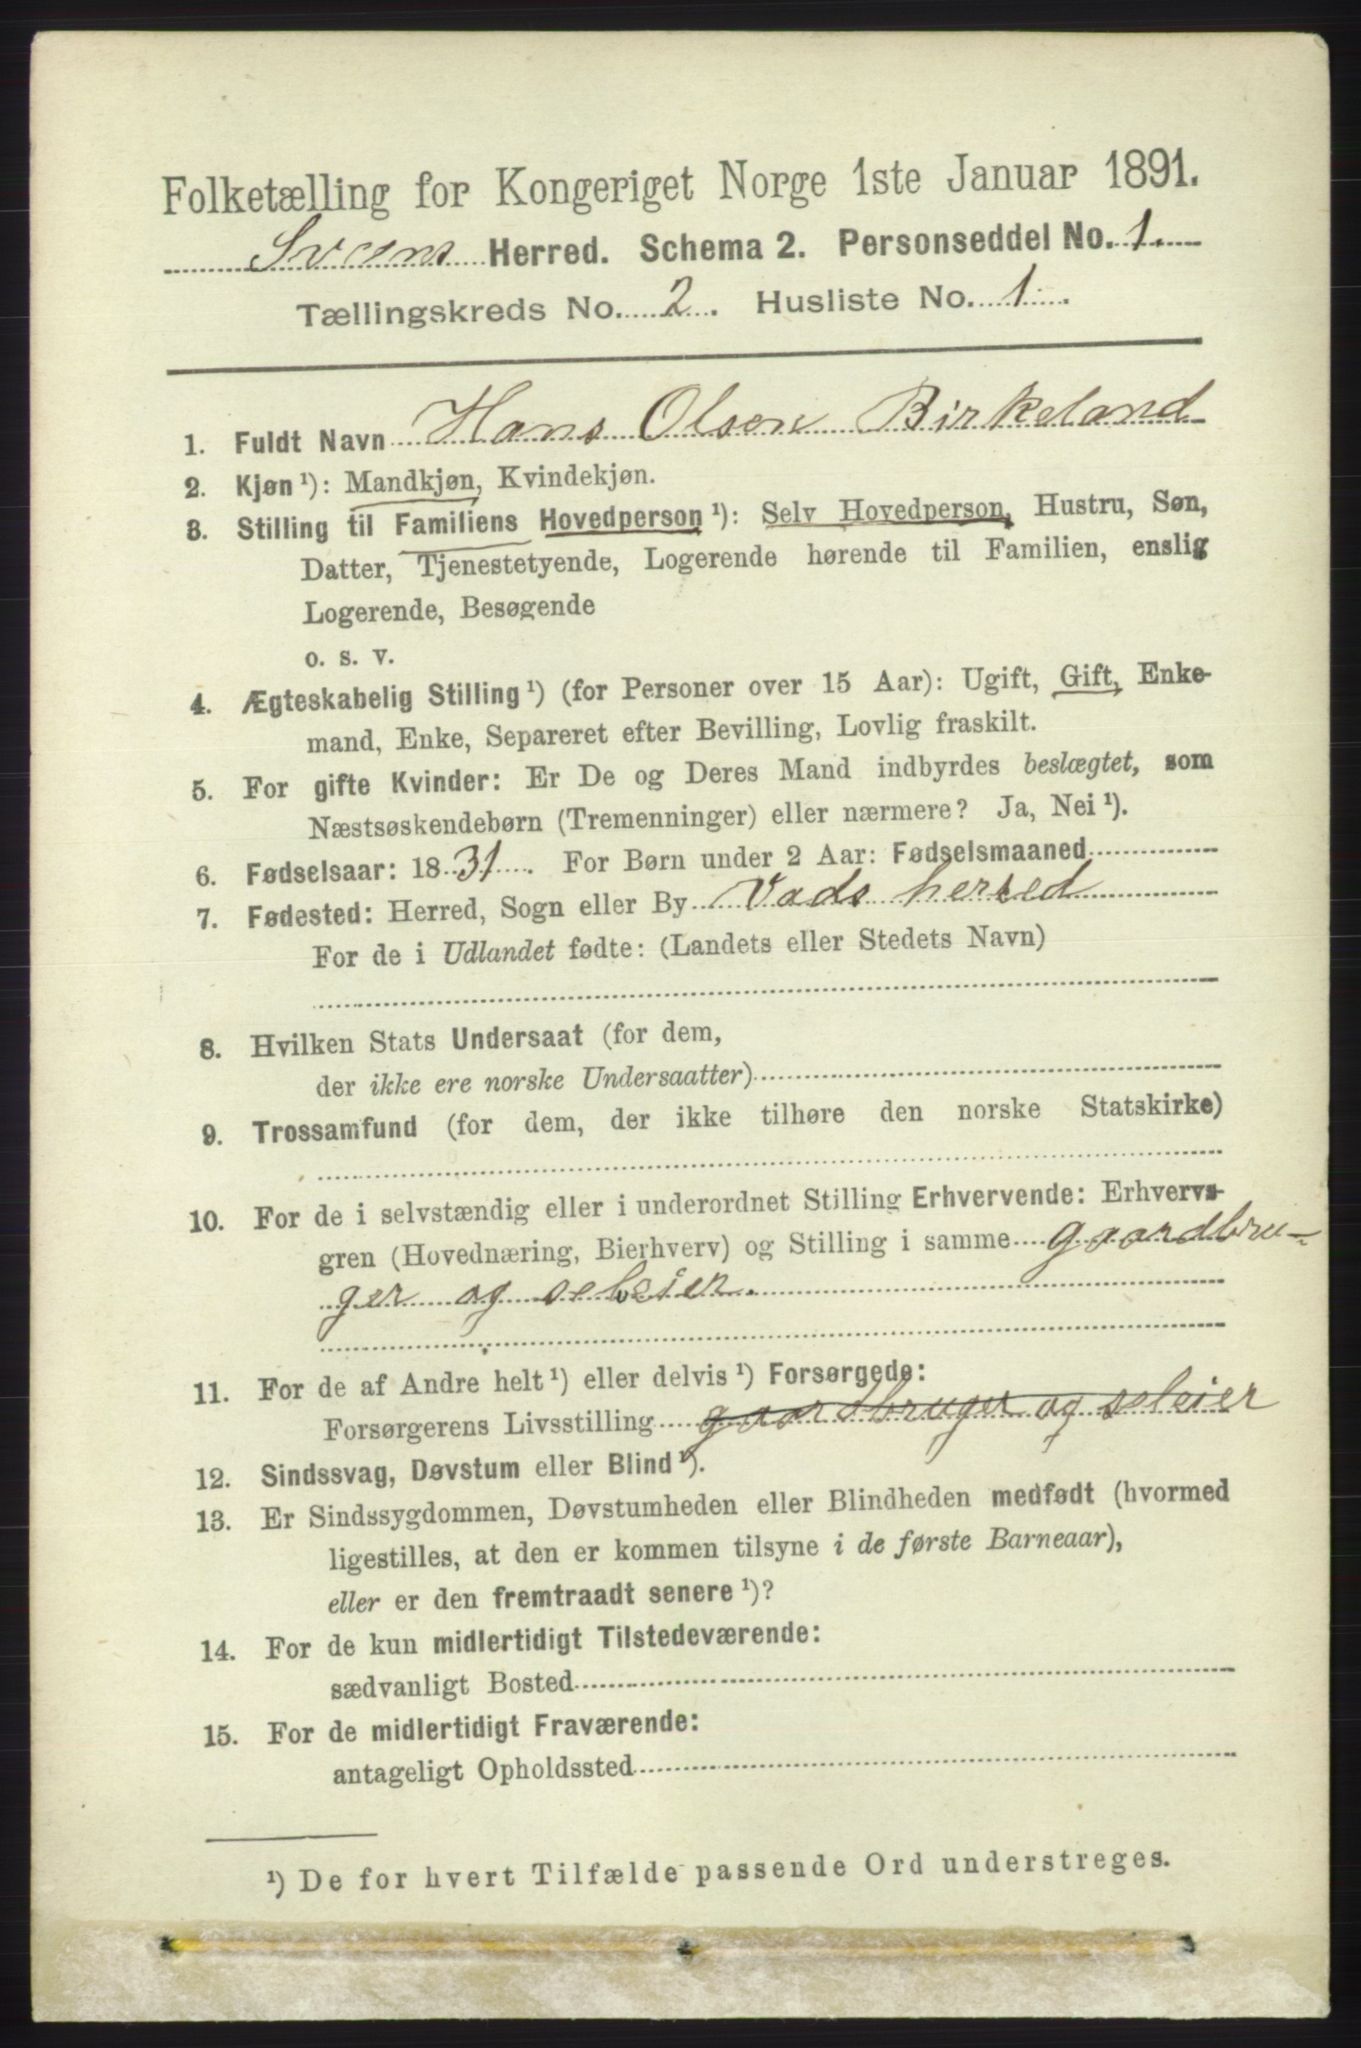 Folketælling for Kongeriget Norge 1ste Januar 1891.
Sveens Herred. Schema 2. Personseddel No. 1.
Tællingskreds No. 2. Husliste No. 1.
1. Fuldt Navn Hans Olsen Birkeland
2. Kjøn ¹): Mandkjøn, Kvindekjøn.
3. Stilling til Familiens Hovedperson ¹): Selv Hovedperson, Hustru, Søn,
Datter, Tjenestetyende, Logerende hørende til Familien, enslig
Logerende, Besøgende
o. s. v.
4. Ægteskabelig Stilling ¹) (for Personer over 15 Aar): Ugift, Gift, Enke-
mand, Enke, Separeret efter Bevilling, Lovlig fraskilt.
5. For gifte Kvinder: Er De og Deres Mand indbyrdes beslægtet, som
Næstsøskendebørn (Tremenninger) eller nærmere? Ja, Nei ¹).
6. Fødselsaar: 1831. For Børn under 2 Aar: Fødselsmaaned
7. Fødested: Herred, Sogn eller By Vads herred
For de i Udlandet fødte: (Landets eller Stedets Navn)
8. Hvilken Stats Undersaat (for dem,
der ikke ere norske Undersaatter)
9. Trossamfund (for dem, der ikke tilhøre den norske Statskirke)
10. For de i selvstændig eller i underordnet Stilling Erhvervende: Erhvervs-
gren (Hovednæring, Bierhverv) og Stilling i samme gaardbru-
ger og selveier.
11. For de af Andre helt ¹) eller delvis ¹) Forsørgede:
Forsørgerens Livsstilling gaardbruger og seleier
12. Sindssvag, Døvstum eller Blind ¹).
13. Er Sindssygdommen, Døvstumheden eller Blindheden medfødt (hvormed
ligestilles, at den er kommen tilsyne i de første Barneaar),
eller er den fremtraadt senere ¹)?
14. For de kun midlertidigt Tilstedeværende:
sædvanligt Bosted
15. For de midlertidigt Fraværende:
antageligt Opholdssted
¹) De for hvert Tilfælde passende Ord understreges.